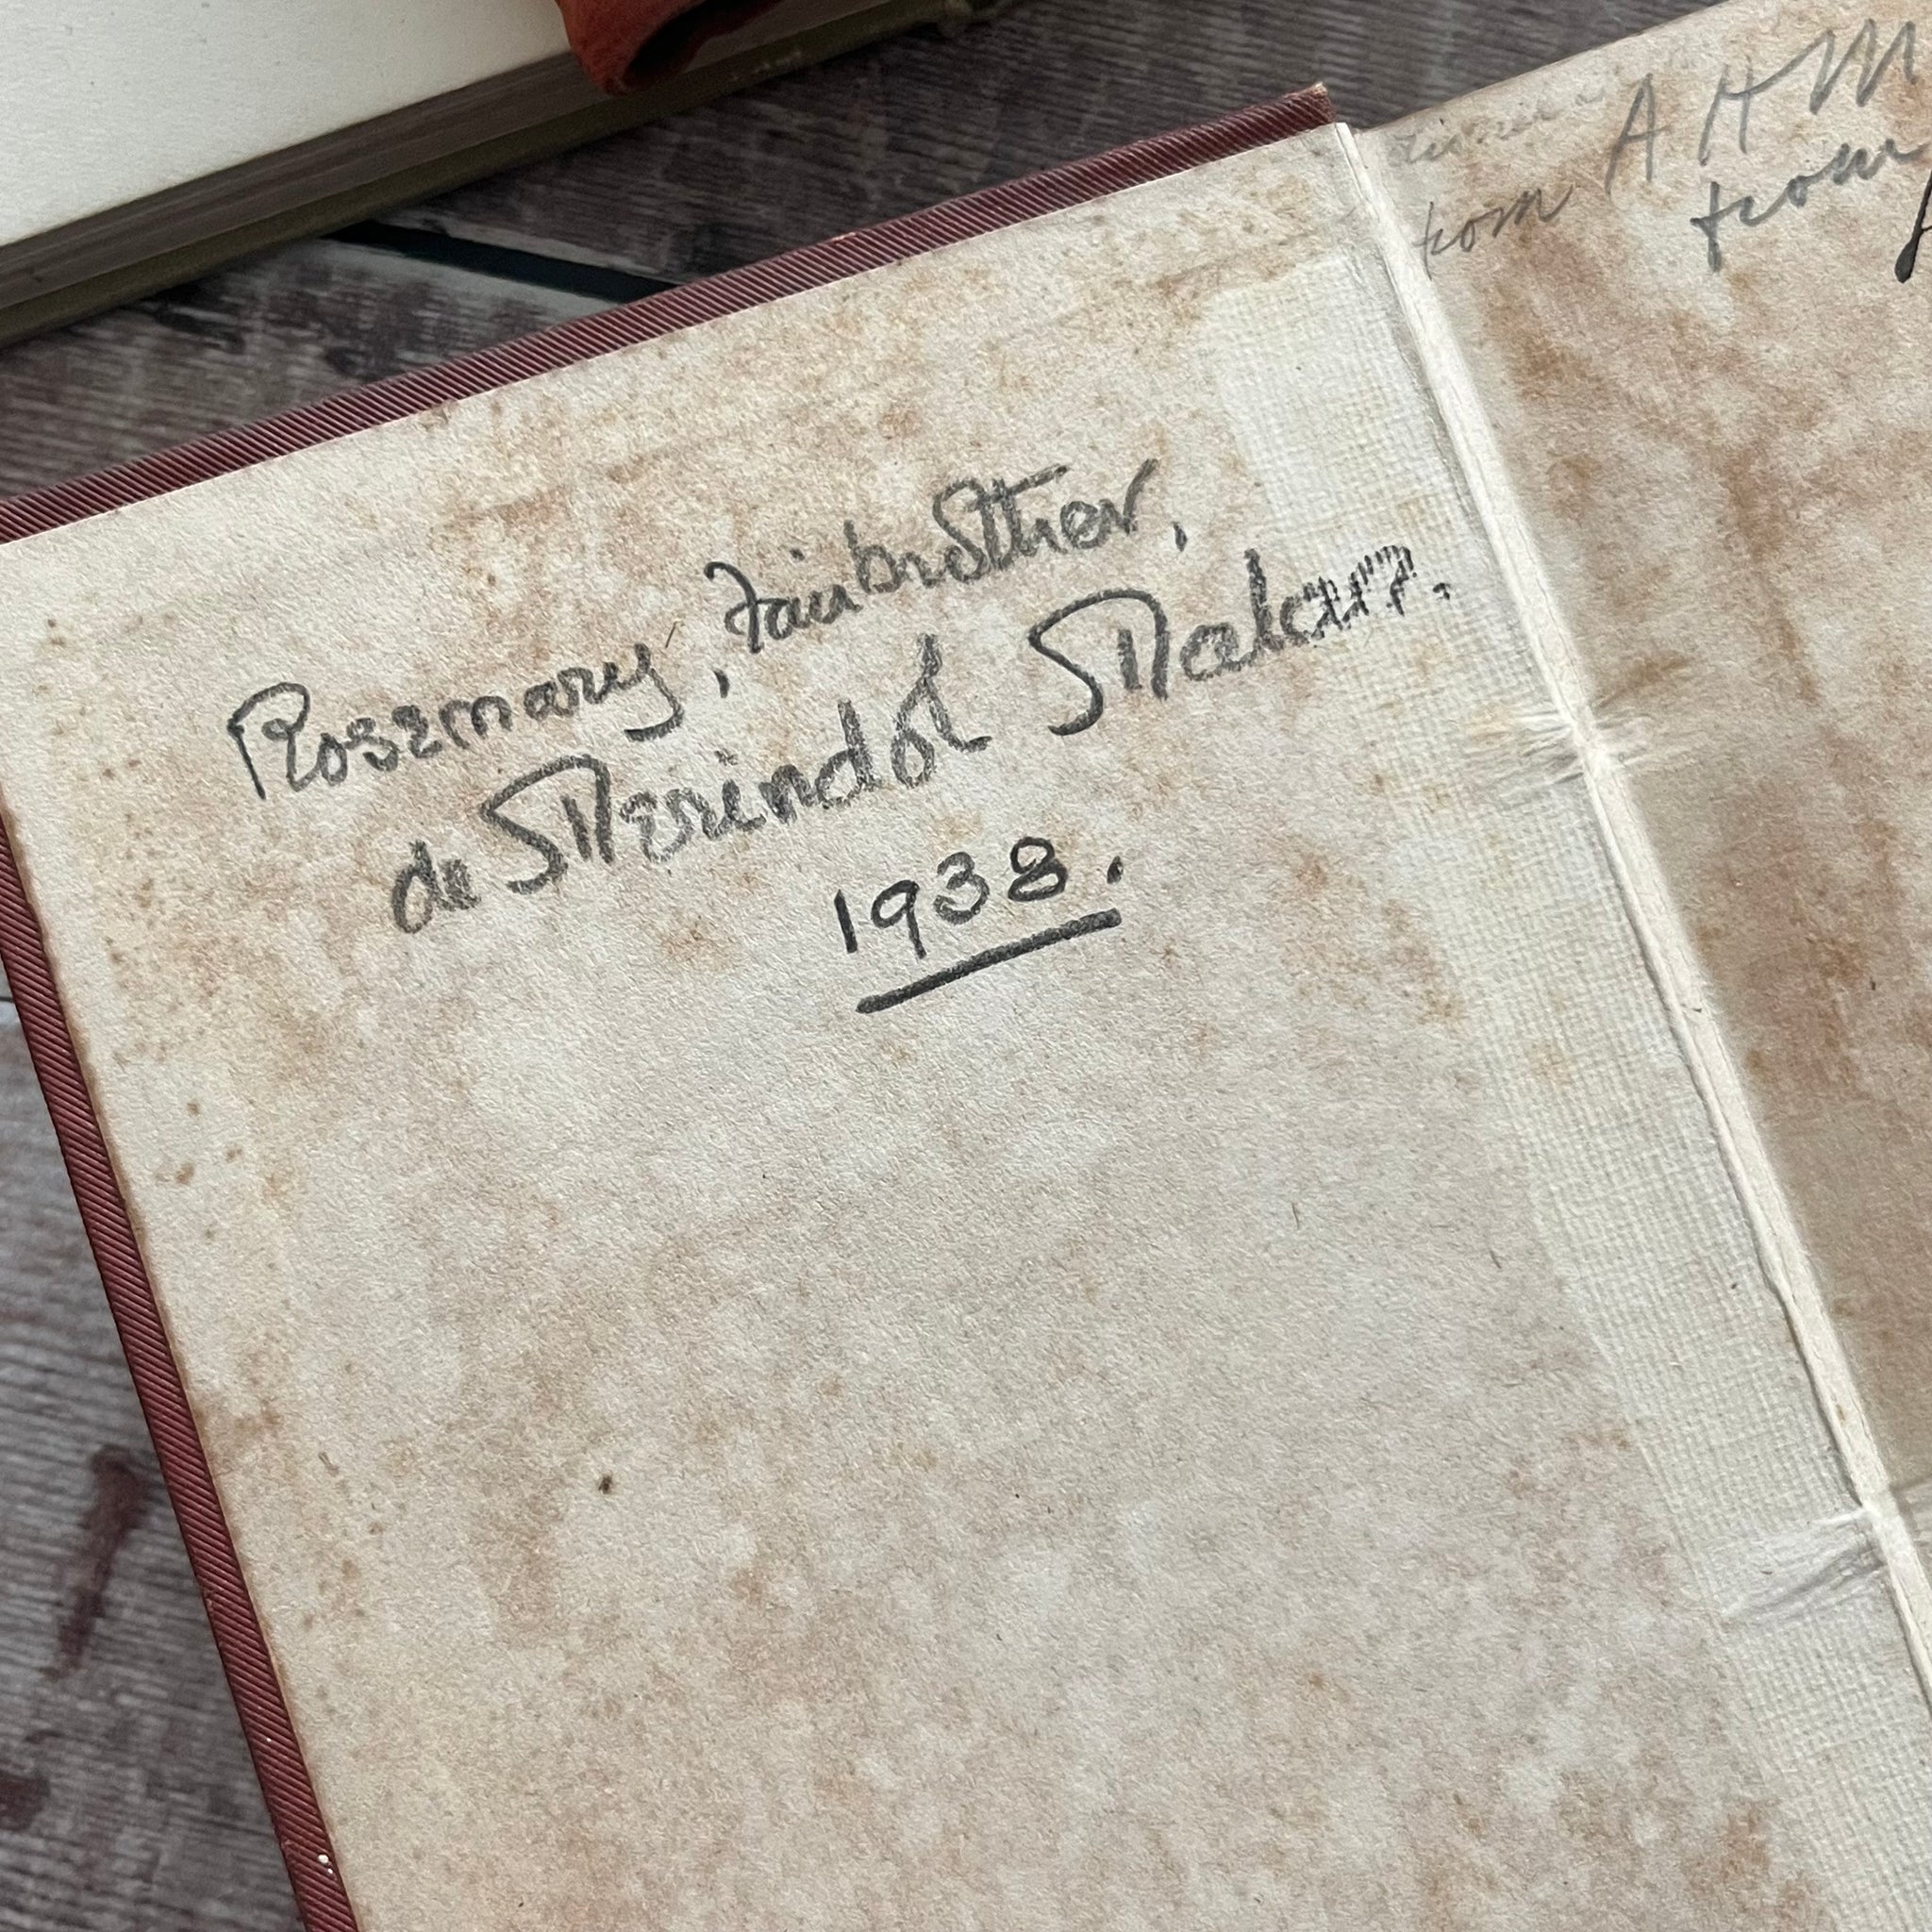 Rosemary, Fairbrother,
de Merindol Malan.
1938.
from A H M
from